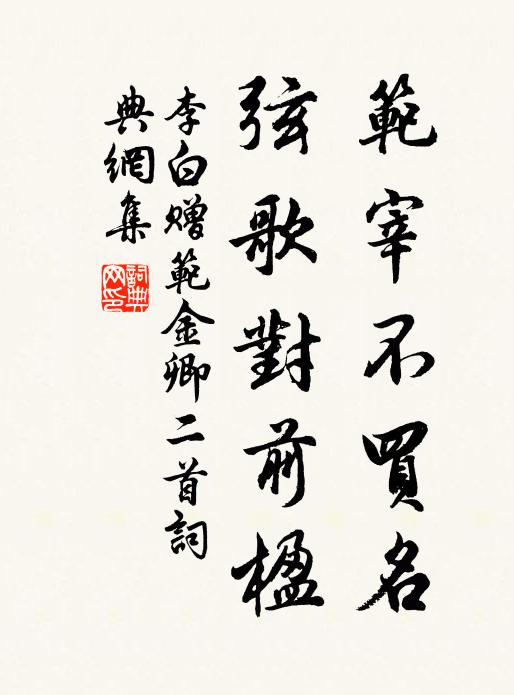 範宰不買名
弦歌對前楹
李白贈範金卿二首詞
典網集
詞典網印